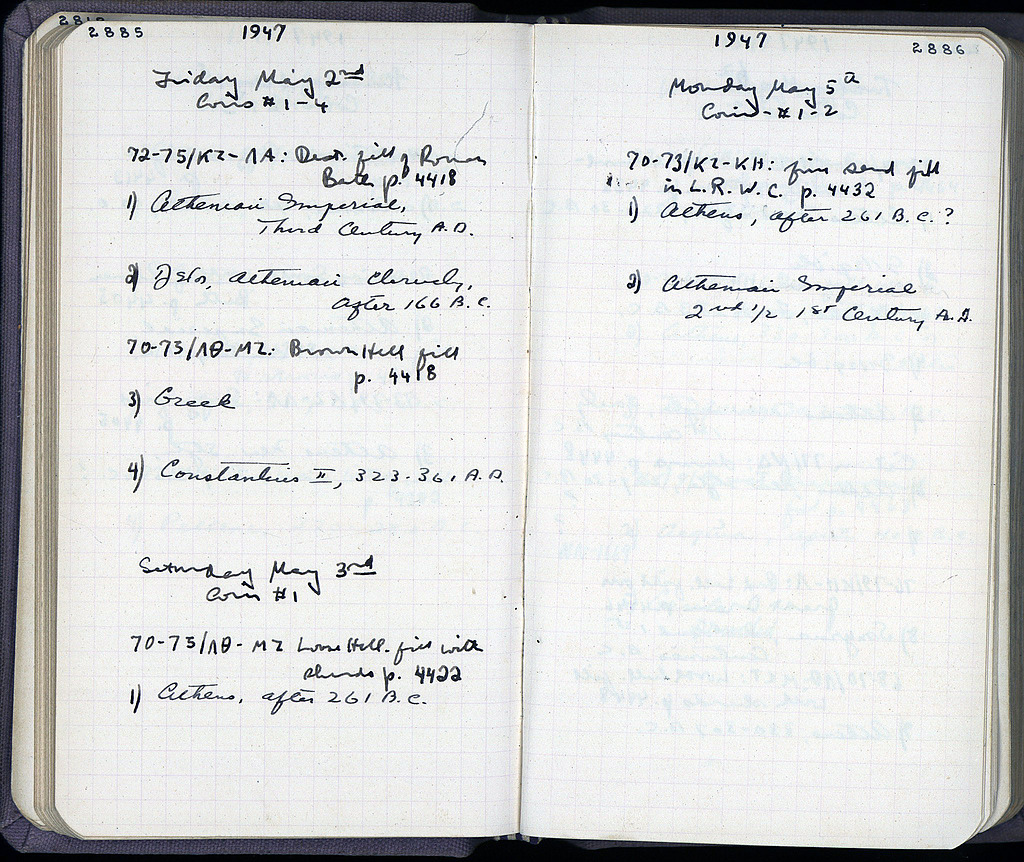 2885
1947
Friday May 2nd
Coins #1-4
72-75/ΚΖ-ΛΑ: Dest. fill of Roman
Bath p. 4418
1) Athenian Imperial,
Third Century A.D.
2) Delos, Athenian Cleruchy,
after 166 B.C.
70-73/ΛΘ-ΜΖ: Brown Hell fill
p. 4418
3) Greek
4) Constantius II, 323-361 A.D.
Saturday May 3rd
Coin #1
70-75/ΛΘ-ΜΖ Loose Hell. fill with
sherds p. 4422
1) Athens, after 261 B.C.
1947
2886
Monday May 5th
Coins - #1-2
70-73/ΚΖ-ΚΗ: fine sand fill
in L.R.W.C. p. 4432
1) Athens, after 261 B.C.?
2) Athenian Imperial
2nd 1/2 1st Century A.D.